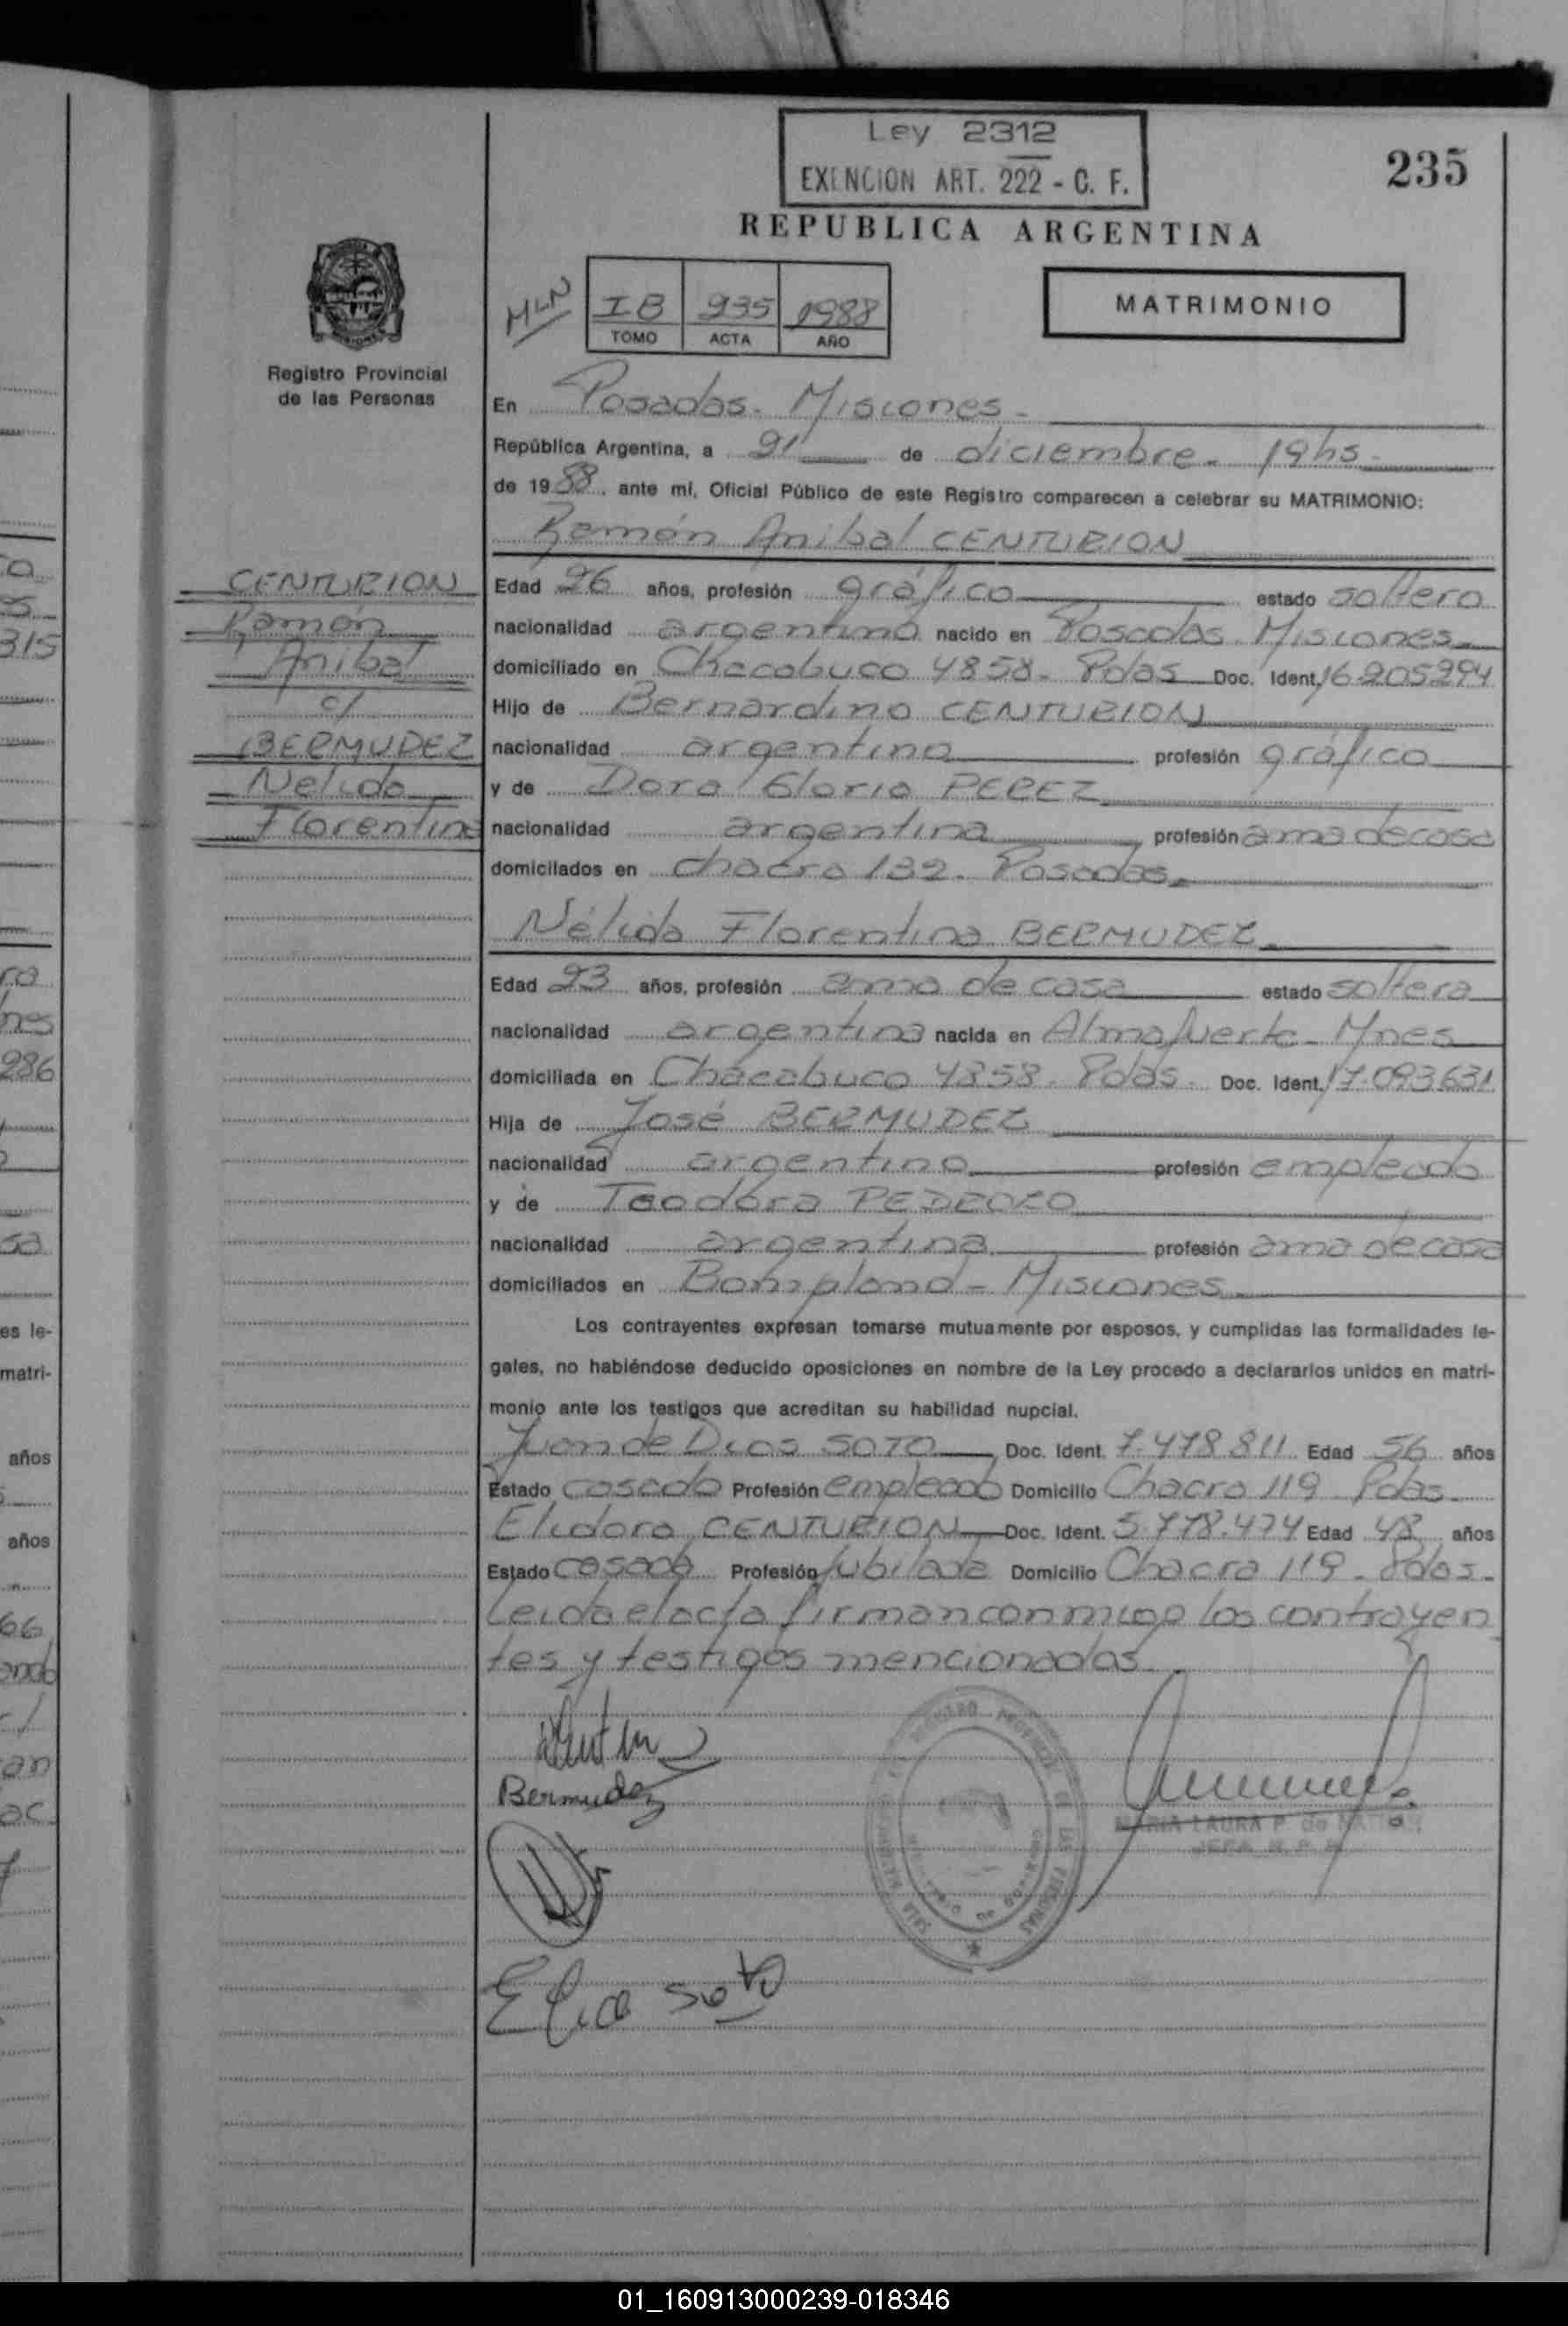 Ley 2312
EXENCION ART. 222 - C. F.
235
REPUBLICA ARGENTINA
MLN
IB 235 1988
TOMO ACTA AÑO
MATRIMONIO
Registro Provincial
de las Personas
En Posadas - Misiones -
República Argentina, a 21 de diciembre - 19hs -
de 19 88, ante mí, Oficial Público de este Registro comparecen a celebrar su MATRIMONIO:
Ramón Anibal CENTURION
CENTURION
Ramón
Anibal
c/
BERMUDEZ
Nelida
Florentina
Edad 26 años, profesión gráfico estado soltero
nacionalidad argentino nacido en Posadas Misiones
domiciliado en Chacabuco 4858 - Pdas Doc. Ident. 16.205294
Hijo de Bernardino CENTURION
nacionalidad argentino profesión gráfico
y de Dora Gloria PEREZ
nacionalidad argentina profesión ama de casa
domicilados en chacra 132 - Posadas
Nélida Florentina BERMUDEZ
Edad 23 años, profesión ama de casa estado soltera
nacionalidad argentina nacida en Almafuerte - Mnes
domiciliada en Chacabuco 4858 - Pdas - Doc. Ident. 17.093631
Hija de José BERMUDEZ
nacionalidad argentino profesión empleado
y de Teodora PEDROZO
nacionalidad argentina profesión ama de casa
domiciliados en Bompland - Misiones
Los contrayentes expresan tomarse mutuamente por esposos, y cumplidas las formalidades le-
gales, no habiéndose deducido oposiciones en nombre de la Ley procedo a declararlos unidos en matri-
monio ante los testigos que acreditan su habilidad nupcial.
Juan de Dios SOTO Doc. Ident. 7.478.811 Edad 56 años
Estado casado Profesión empleado Domicilio Chacra 119 Pdas -
Elidora CENTURION Doc. Ident. 5.778.474 Edad 48 años
Estado casada Profesión jubilada Domicilio Chacra 119 - Pdas -
Leida el acta firman conmigo los contrayen
tes y testigos mencionados
Bermudez
MARIA LAURA P. de
JEFA R. P. P.
Elida Soto
es le-
matri-
años
años
01_160913000239-018346